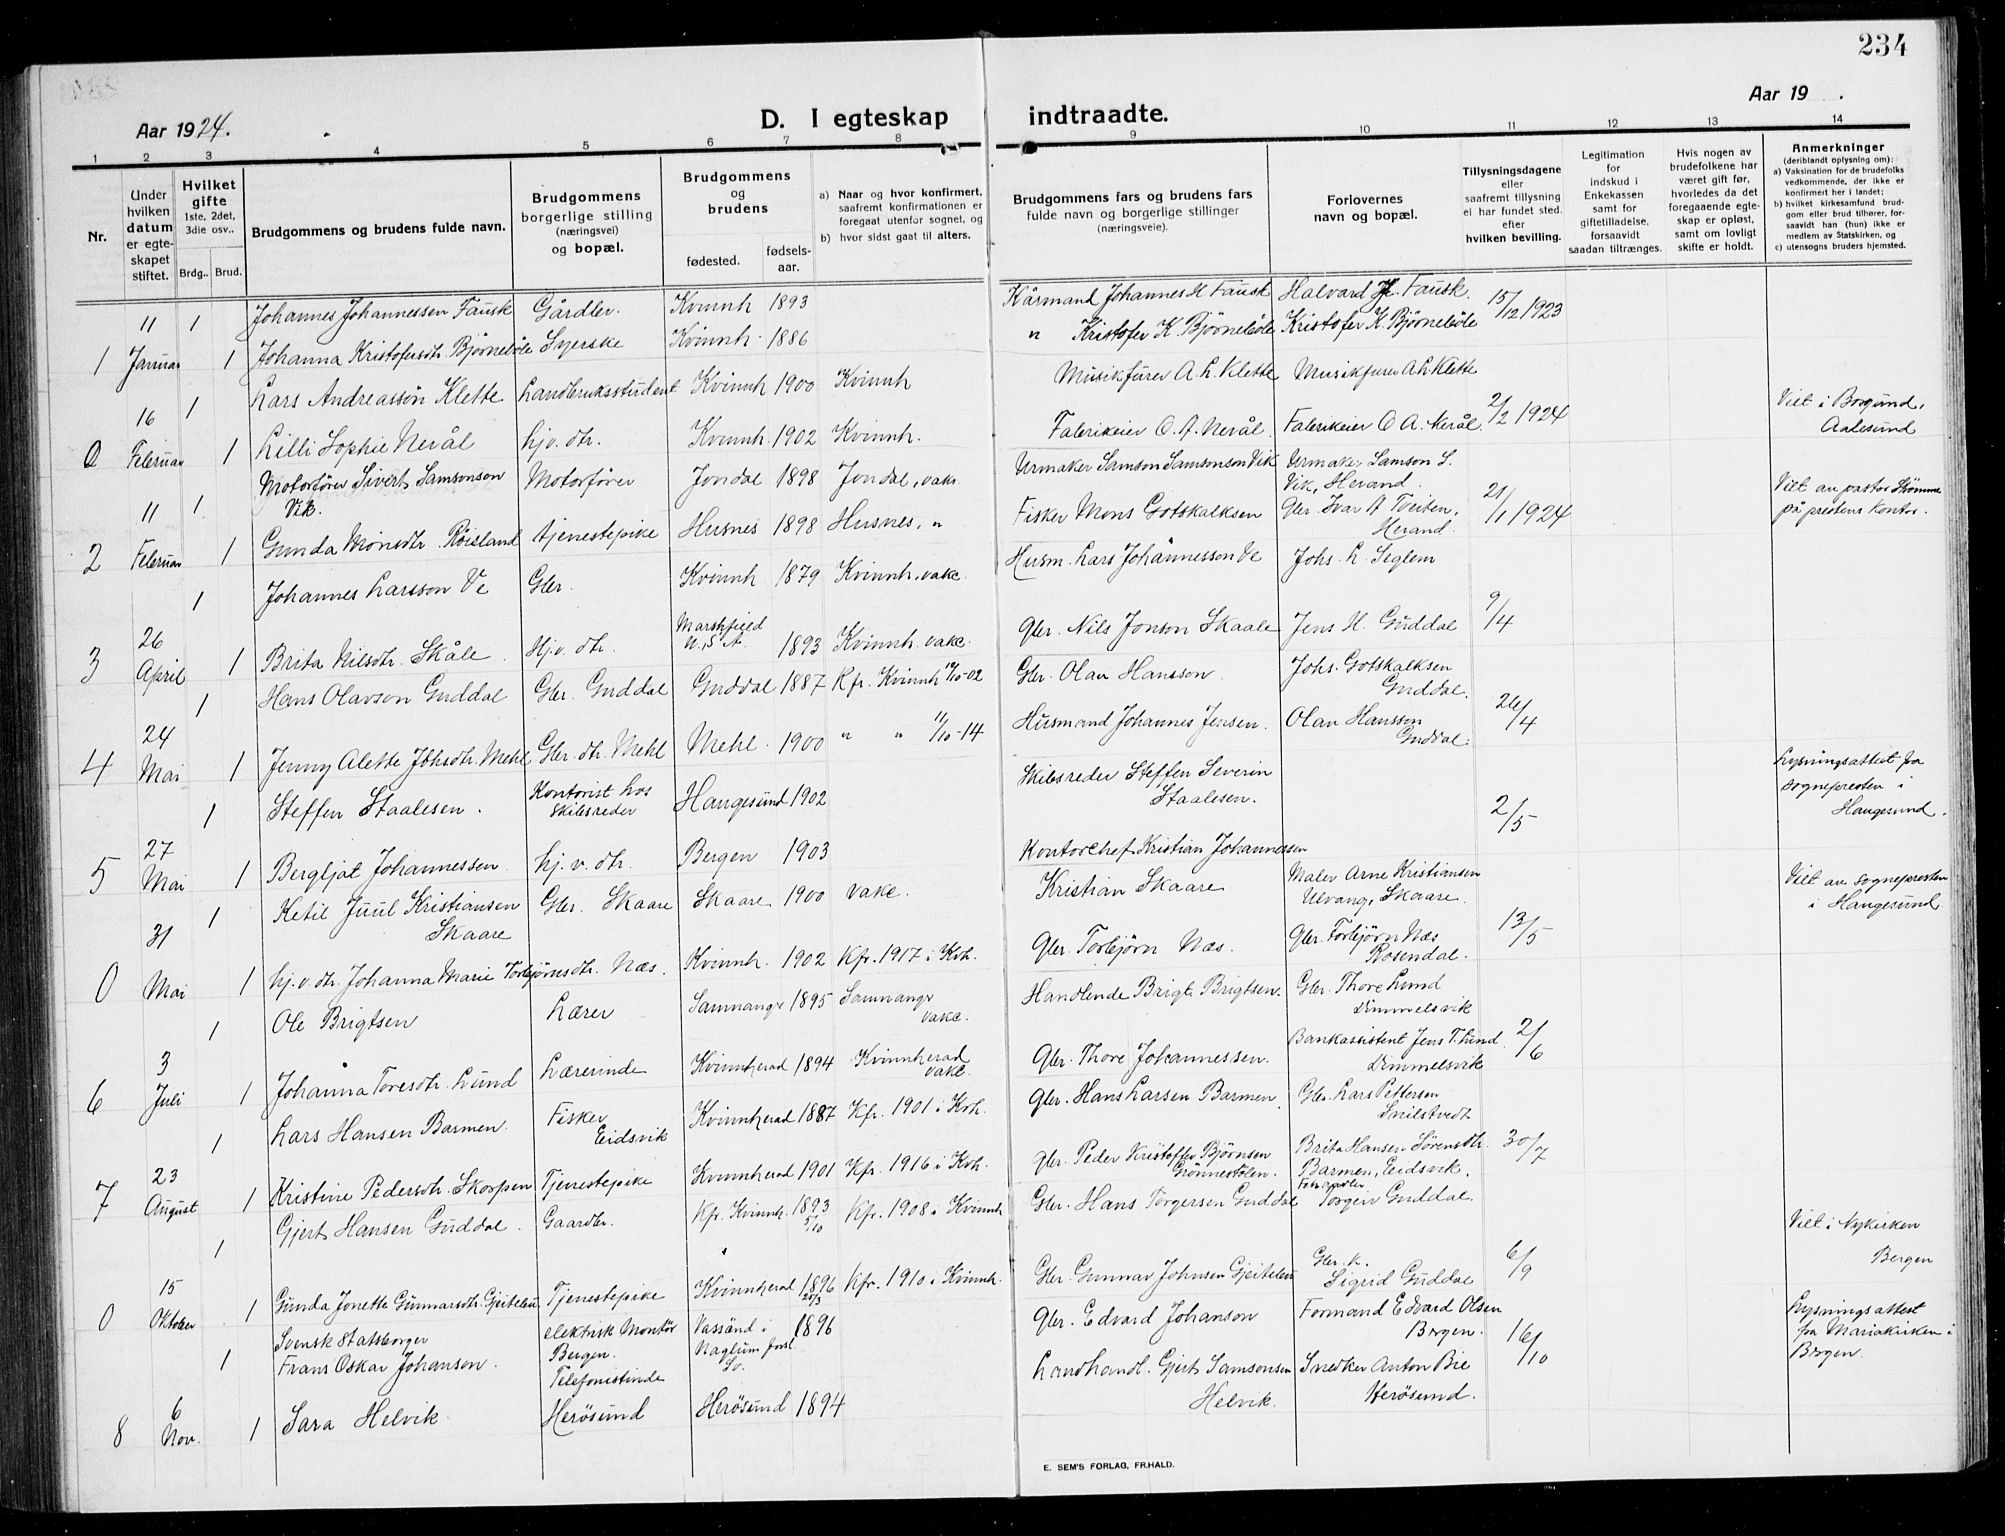 234
Aar 1924.
D. I egteskap indtraadte.
Aar 19   .
1 2 3 4 5 6 7 8 9 10 11 12 13 14
Nr.
Under hvilken datum er egteskapet stiftet.
Hvilket gifte 1ste, 2det, 3die osv..
Brdg.. Brud.
Brudgommens og brudens fulde navn.
Brudgommens borgerlige stilling (næringsvei) og bopæl.
Brudgommens og brudens
fødested. fødselsaar.
a) Naar og hvor konfirmert, saafremt konfirmationen er foregaat utenfor sognet, og
b) hvor sidst gaat til alters.
Brudgommens fars og brudens fars fulde navn og borgerlige stillinger (næringsveie).
Forlovernes navn og bopæl.
Tillysningsdagene eller saafremt tillysning ei har fundet sted. efter hvilken bevilling.
Legitimation for indskud i Enkekassen samt for giftetilladelse, forsaavidt saadan tiltrænges.
Hvis nogen av brudefolkene har været gift før, hvorledes da det foregaaende egteskap er opløst, samt om lovligt skifte er holdt.
Anmerkninger (deriblandt oplysning om): a) Vaksination for de brudefolks vedkommende, der ikke er konfirmert her i landet; b) hvilket kirkesamfund brudgom eller brud tilhører, forsaavidt han (hun) ikke er medlem av Statskirken, og c) utensogns bruders hjemsted.
11 1 Johannes Johannessen Fausk Gårdbr. Kvinnh 1893 Kårmand Johannes H Fausk Halvard H. Fausk. 15/12 1923
1 Januar 1 Johanna Kristofersdtr. Bjørnebøle Syerske Kvinnh. 1886 " Kristofer K Bjørnebøle Kristofer K. Bjørnebøle
16 1 Lars Andreassøn Klette Landbruksstudent Kvinnh 1900 Kvinnh Musikfürer A. L. Klette Musikfürer A L Klette 2/2 1924 Viet i Borgund, Aalesund
0 Februar 1 Lilli Sophie Nerål hj.v. dtr. Kvinnh 1902 Kvinnh. Fabrikeier O. A. Nerål. Fabrikeier O A. Nerål.
11 1. Motorfører Sivert Samsonson Vik. Motorfører Jondal 1898 Jondal, vaks. Urmaker Samson Samsonson Vik Urmaker Samson S. Vik, Herand. 21/1 1924 Viet av pastor Strømme på prestens kontor.
2 Februar 1 Gunda Monsdtr. Røisland tjenestepike Husnes 1898 Husnes, " Fisker Mons Gotskalksen Gbr. Ivar A Tveiten, Herand.
1 Johannes Larsson Ve Gbr. Kvinnh 1879 Kvinnh. vakc. Husm. Lars Johannesson Ve Johs. L. Seglem 9/4
26
3 April 1 Brita Nilsdtr. Skåle Hj.v. dtr. Marshfield U.S.A. 1893 Kvinnh. vakc. Gbr. Nils Jonson Skaale Jens H. Guddal
1 Hans Olavson Guddal Gbr. Guddal Guddal 1887 Kfr. Kvinnh 12/10-02 Gbr. Olav Hansson. Johs. Gotskalksen Guddal. 26/4
24
4 Mai 1 Jenny Alette Johsdtr. Mehl Gbr. dtr. Mehl Mehl. 1900 " " 11/10-14 Husmand Johannes Jensen. Olav Hansson Guddal.
1 Steffen Staalesen. Kontorist hos Skibsreder Haugesund 1902 Skibsreder Steffen Severin Staalesen. 2/5 Lysningsattest fra sognepresten i Haugesund.
27
5 Mai 1 Bergljot Johannessen hj. v. dtr. Bergen 1903 Kontorchef Kristian Johannessen
1 Ketil Juul Kristiansen Skaare Gbr. Skaare Skaare 1900 vakc. Kristian Skaare Maler Arne Kristiansen Ulvang, Skaare. 13/5 Viet av sognepresten i Haugesund.
31
0 Mai 1 hj.v. dtr. Johanna Marie Torbjørnsdtr. Næs. Kvinnh. 1902 Kfr. 1917 i Kvh. Gbr. Torbjørn Næs. Gbr. Torbjørn Næs Rosendal.
1 Ole Brigtsen Lærer Samnanger 1895 Samnanger vakc. Handlende Brigt Brigtsen. Gbr. Thore Lund Dimmelsvik 2/6
3
6 Juli 1 Johanna Toresdtr. Lund Lærerinde Kvinnherad 1894 Kvinnherad vakc. Gbr. Thore Johannessen. Bankassistent Jens T. Lund Dimmelsvik
1 Lars Hansen Barmen. Fisker Eidsvik Kvinnherad 1887 Kfr. 1901 i Kvh. Gbr. Hans Larsen Barmen Gbr. Lars Pettersen Snilstvedt 30/7
23
7 August 1 Kristine Pedersdtr. Skorpen Tjenestepike Kvinnherad 1901 Kfr. 1916 i Kvh. Gbr. Peder Kristoffer Bjørnsen Grønnestølen. Brita Hansen Sørensdtr. Barmen, Eidsvik.
1 Gjert Hansen Guddal. Gaardbr. Kfr. Kvinnh. 1893 5/10 Kfr. 1908 i Kvinnh Gbr. Hans Torgersen Guddal Torgeir Guddal. 6/9 Viet i Nykirken Bergen
15
0 Oktober 1 Gunda Jonette Gunnarsdtr. Gjeitelau Tjenestepike Kvinnherad 1896 25/3 Kfr. 1910 i Kvinnh. Gbr. Gunnar Johnsen Gjeitelau Gbr. k. Sigrid Guddal
1 Svensk statsborger Frans Oskar Johanson. elektrisk Montør Bergen. Vassänd i Naglum forsl. Sv. 1896 Gbr. Edvard Johanson Formand Edvard Olsen Bergen. 16/10 Lysningsattest fra Mariakirken i Bergen.
6
8 Nov. 1 Sara Helvik Telefonistinde Herøsund Herøsund 1894 Landhandl. Gjert Samsonsen Helvik. Snedker Anton Bie Herøsund.
E. SEM'S FORLAG, FR.HALD.